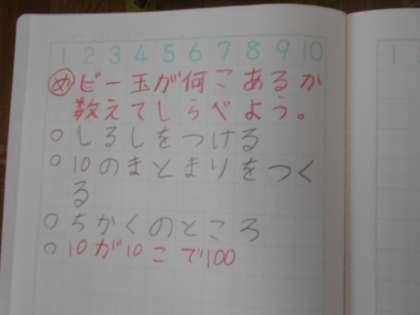 1 2 3 4 5 6 7 8 9 10
め ビー玉が何こあるか
数えてしらべよう。
○しるしをつける
○10のまとまりをつく
る
○ちかくのところ
○10が10こで100
1